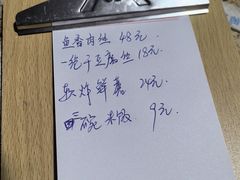 鱼香肉丝 48元.
一绝干豆腐丝 18元.
软炸鲜蘑 24元.
三碗米饭 9元.